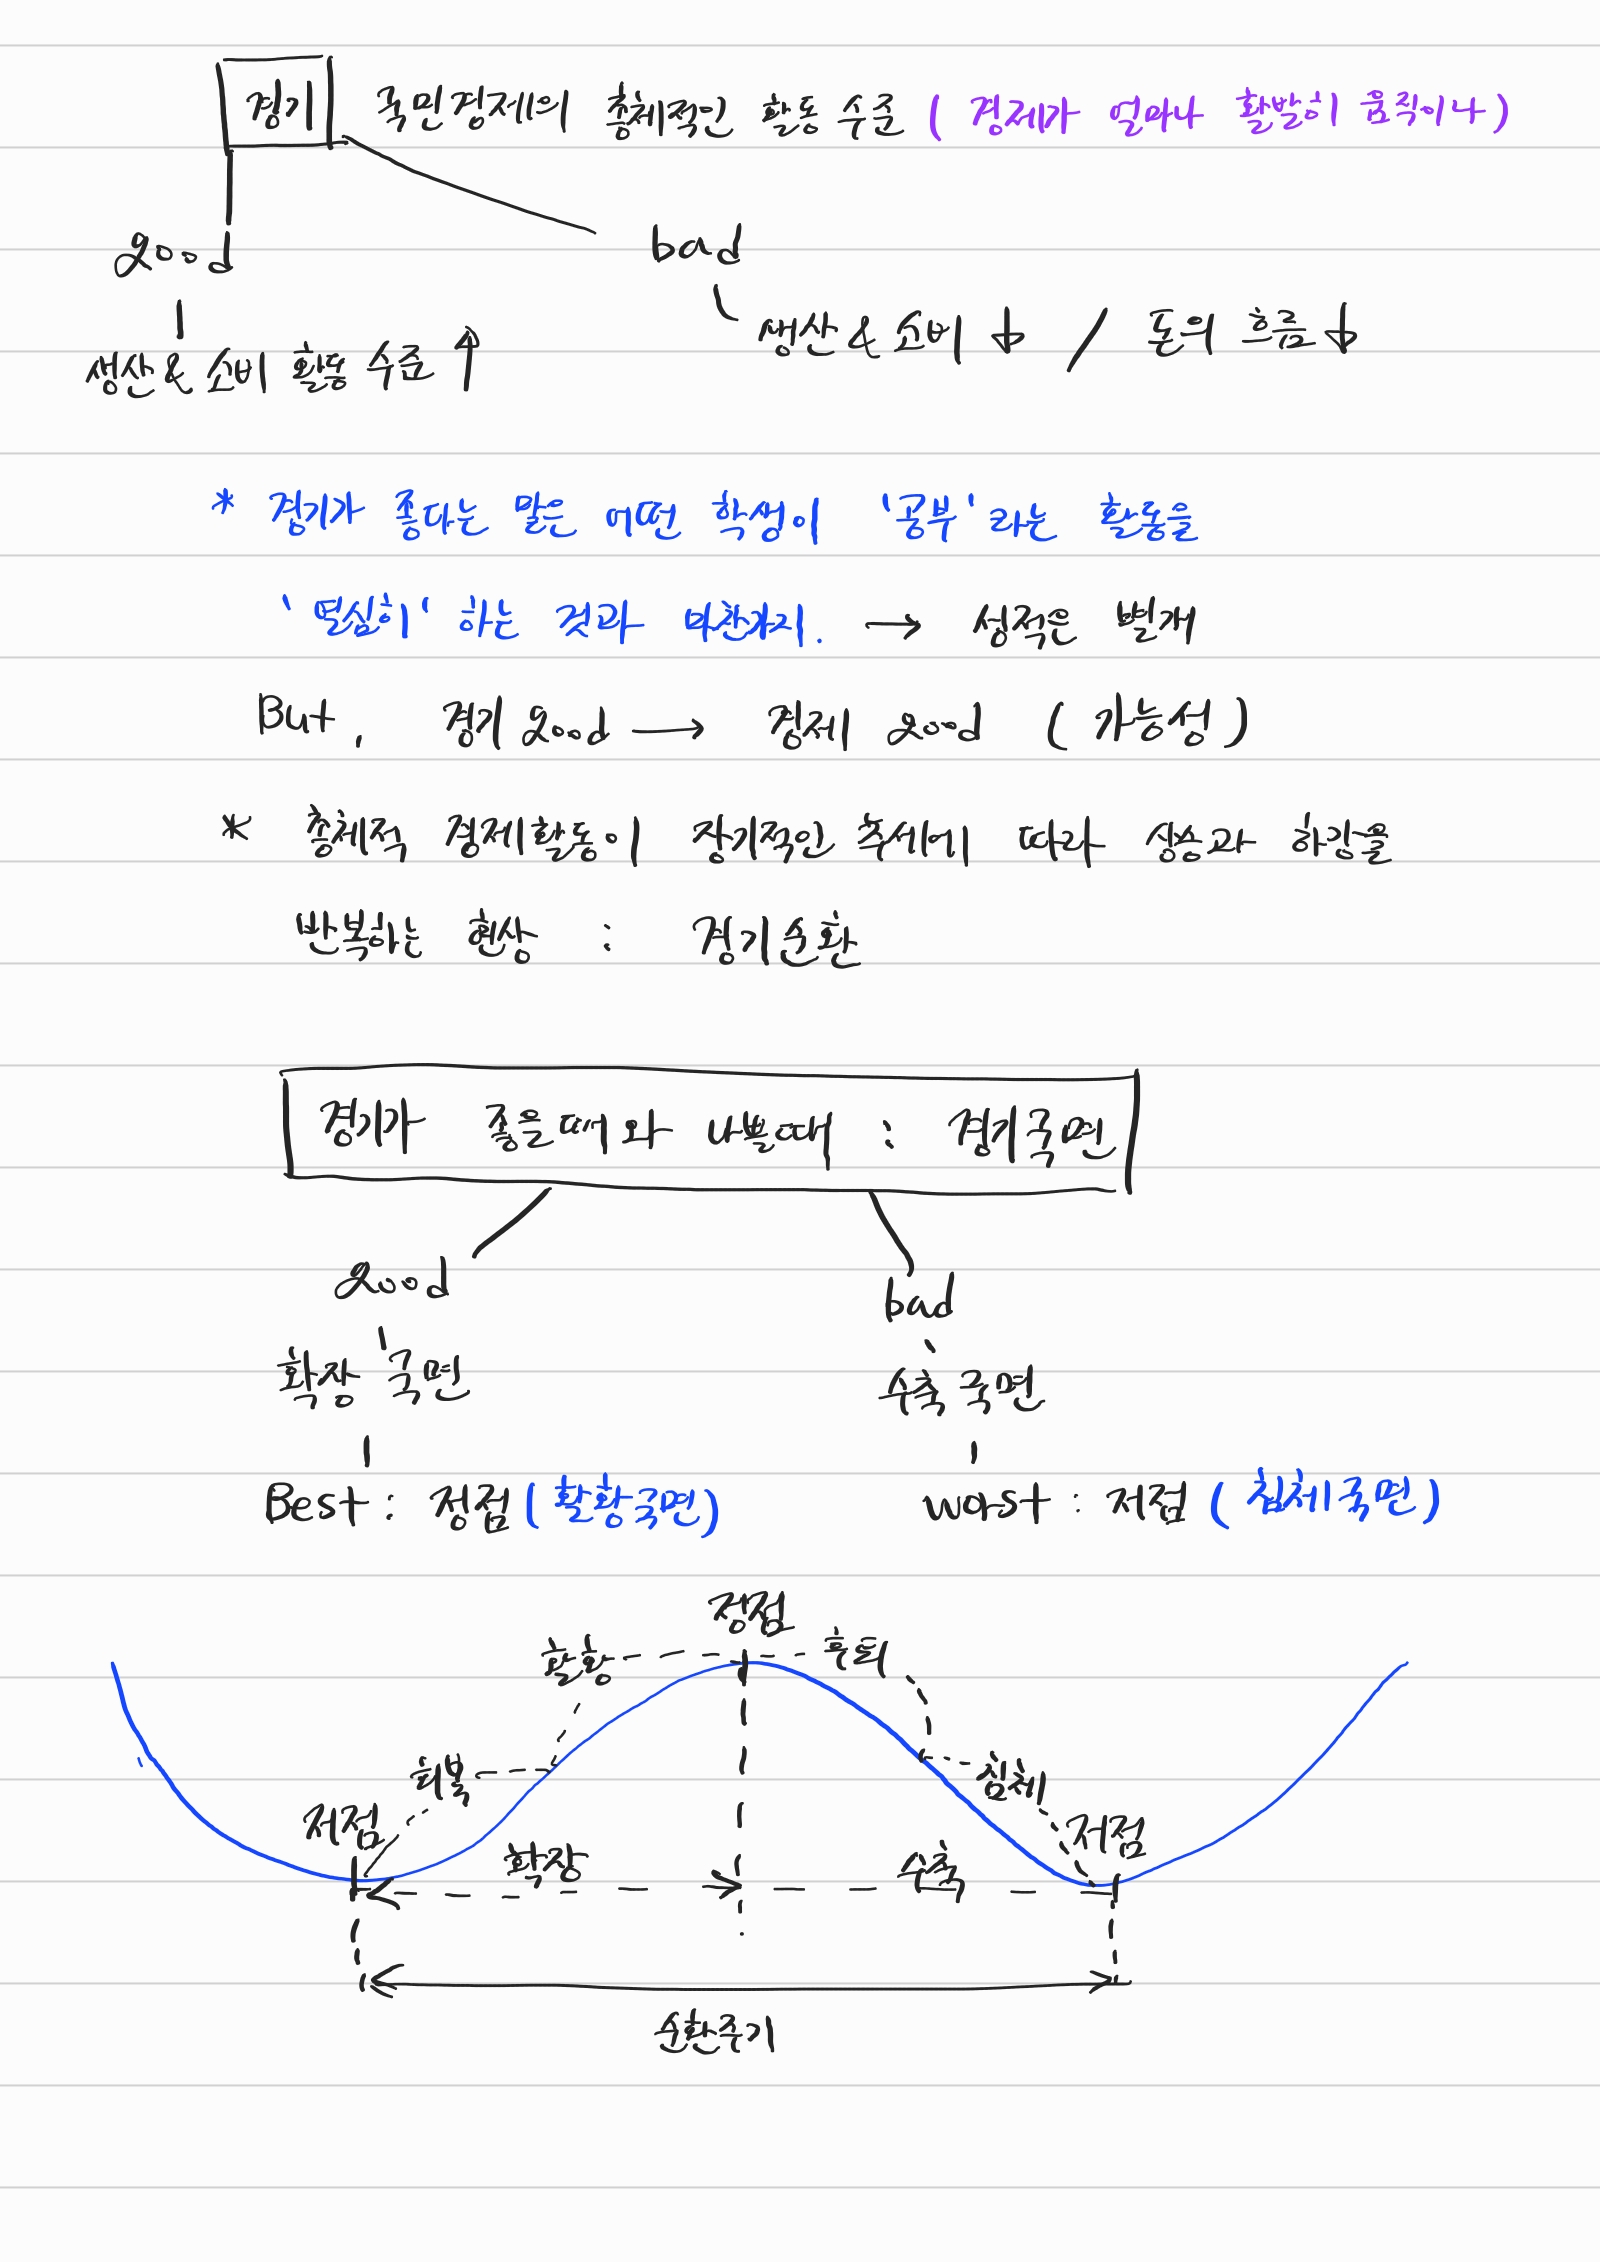 경기 국민경제의 총체적인 활동 수준 ( 경제가 얼마나 활발히 움직이나 )
good bad
생산 & 소비 ↓ / 돈의 흐름 ↓
생산 & 소비 활동 수준 ↑
* 경기가 좋다는 말은 어떤 학생이 '공부' 라는 활동을
'열심히' 하는 것과 마찬가지. → 성적은 별개
But, 경기 good → 경제 good ( 가능성 )
* 총체적 경제활동이 장기적인 추세에 따라 상승과 하강을
반복하는 현상 : 경기순환
경기가 좋을때와 나쁠때 : 경기국면
good bad
확장 국면 수축 국면
Best : 정점 ( 활황국면 ) worst : 저점 ( 침체국면 )
정점
활황 후퇴
회복 침체
저점 저점
확장 수축
순환주기